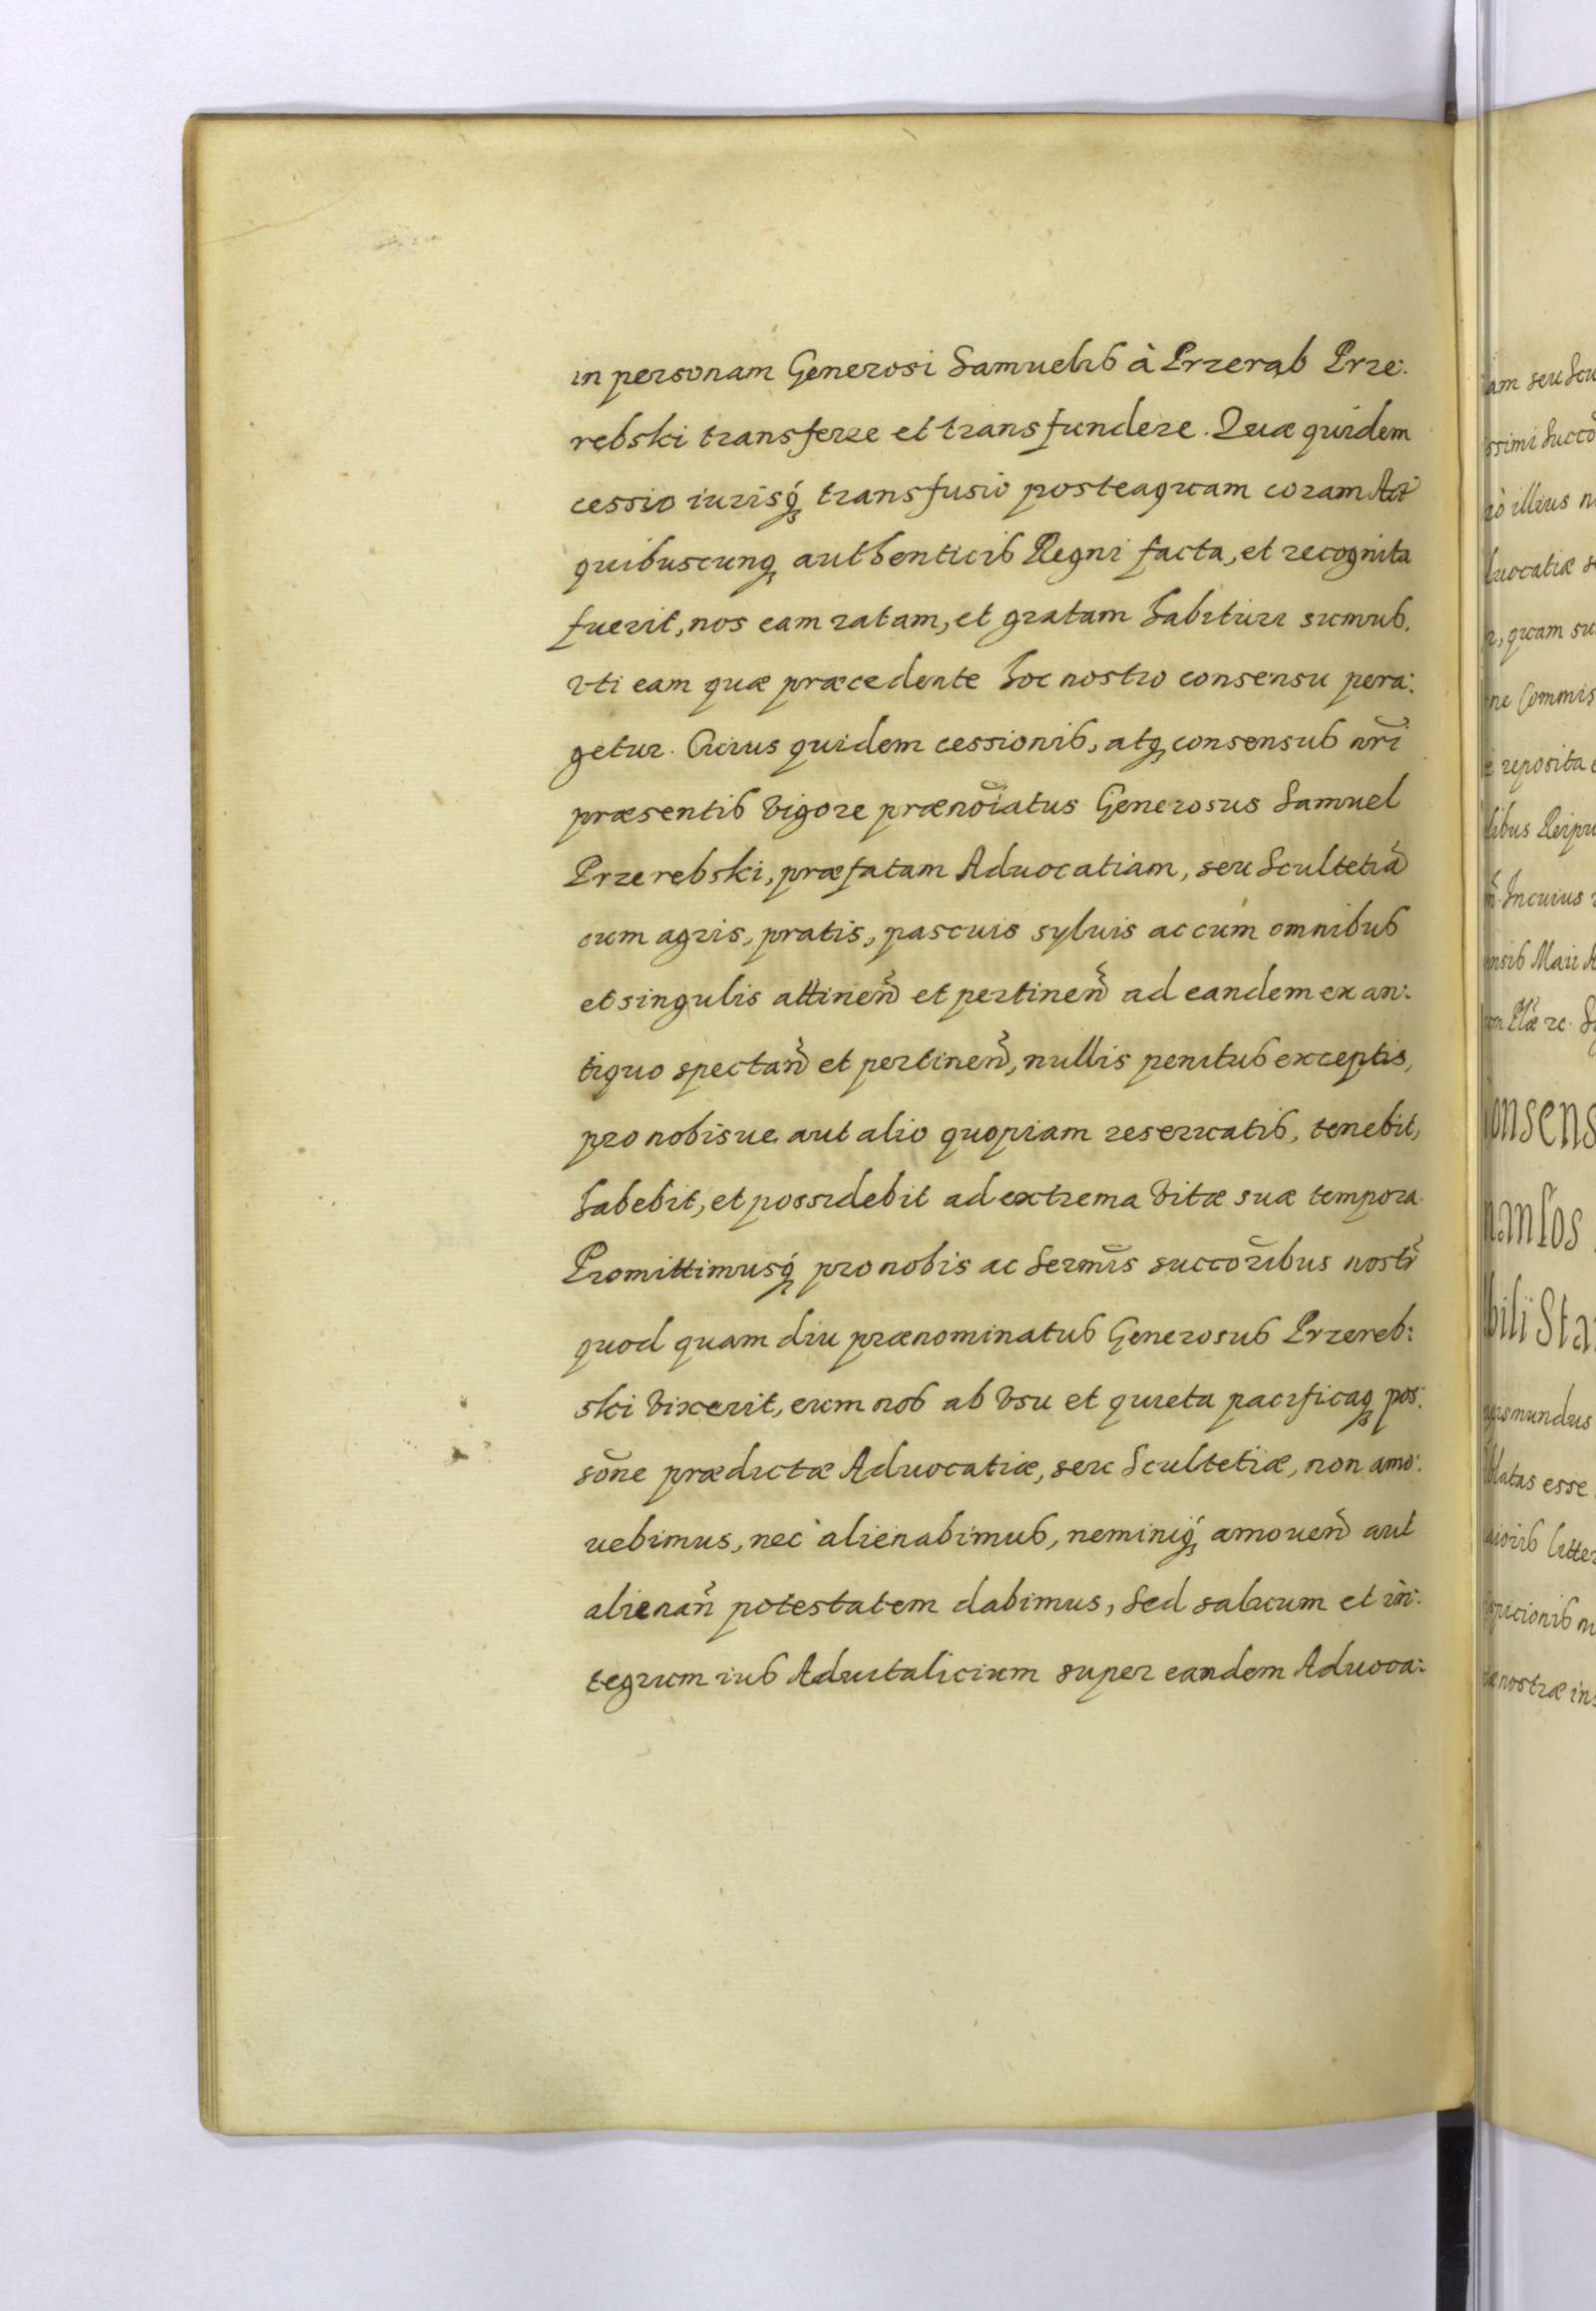 in personam Generosi Samuelis à Przerąb Prze:
rębski transferre et transfundere. Quæ quidem
cessio iurisq́ꝫ transfusio posteaquam coram Act̃
quibuscunqꝫ authenticis Regni facta, et recognita
fuerit, nos eam ratam, et gratam habituri sumus.
Vti eam quæ præcedente hoc nostro consensu pera:
getur. Cuius quidem cessionis, atqꝫ consensus nr̃i
præsentis vigore prænoĩatus Generosus Samuel
Przerębski, præfatam Aduocatiam, seu Scultetiã
cum agris, pratis, pascuis syluis ac cum omnibus
et singulis attinen̄ et pertinen̄ ad eandem ex an:
tiquo spectan̄ et pertinen̄, nullis penitus exceptis,
pro nobisue aut alio quopiam reseruatis, tenebit,
habebit, et possidebit ad extrema vitæ suæ tempora.
Promittimusq́ꝫ pro nobis ac Serm̃is succor̃ibus nostr̃
quod quam diu prænominatus Generosus Przereb:
ski vixerit, eum nos ab vsu et quieta pacificaqꝫ pos:
sõne prædictæ Aduocatiæ, seu Scultetiæ, non amo:
uebimus, nec alienabimus, neminiq́ꝫ amouen̄ aut
alienan̄ potestatem dabimus, sed saluum et in:
tegrum ius Aduitalicium super eandem Aduoca: